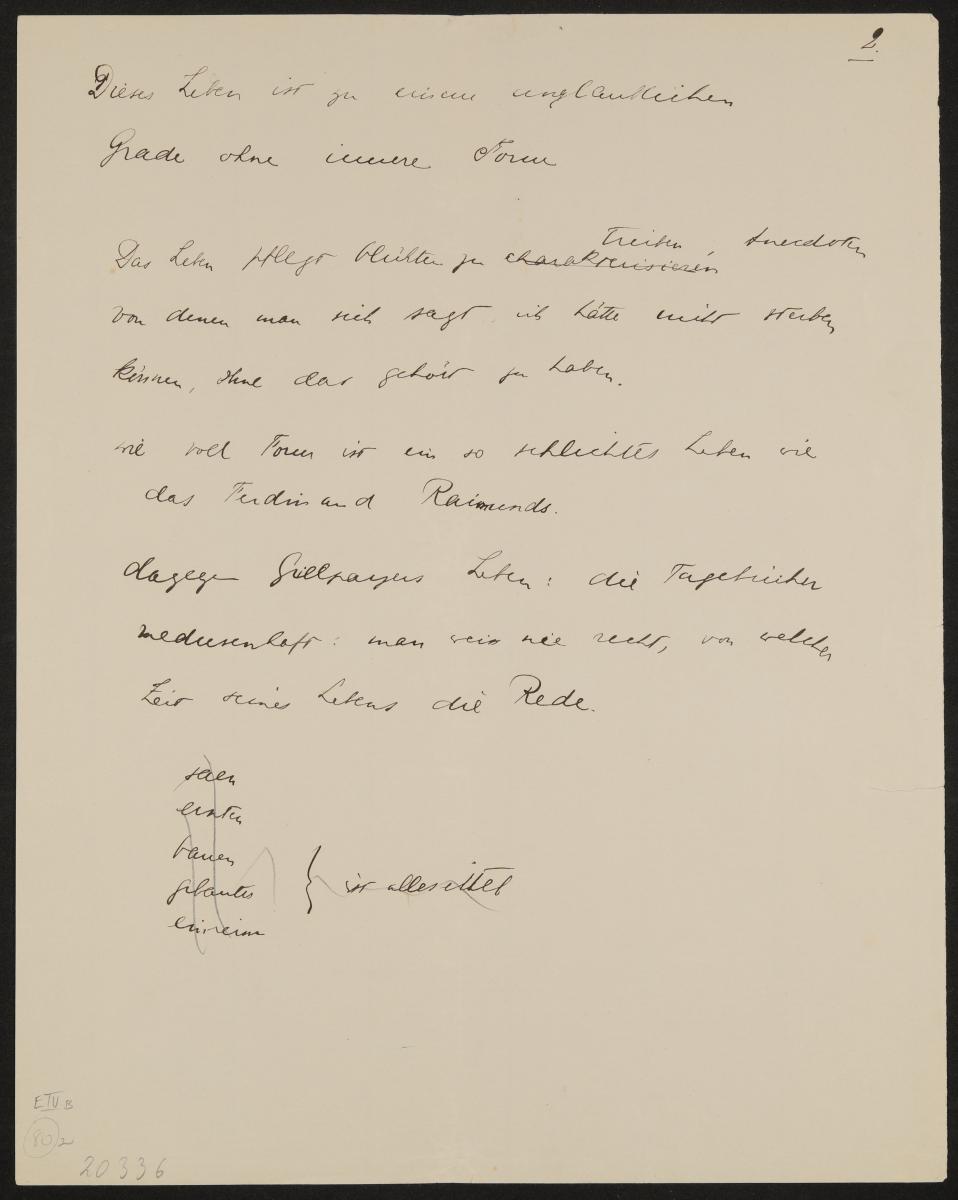 2.
Dieses Leben ist zu einem unglaublichen
Grade ohne innere Form
treiben, Anecdoten
Das Leben pflegt Blüthen zu charakterisieren
von denen man sich sagt ich hätte nicht sterben
können, ohne das gehört zu haben.
wie voll Form ist ein so schlichtes Leben wie
das Ferdinand Raimunds.
dagegen Grillparzers Leben: die Tagebücher
medusenhaft: man weiss nie recht, von welcher
Zeit seines Lebens die Rede.
säen
ernten
bauen
gebautes
ist alles eitel
E IV B
80
2
20336